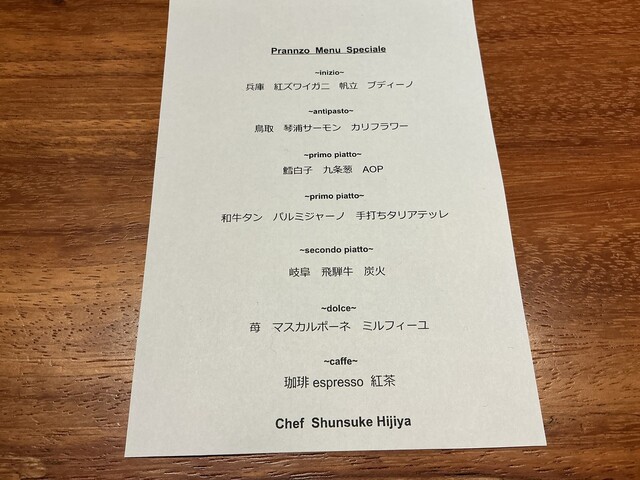 Prannzo Menu Speciale
~inizio~
兵庫 紅ズワイガニ 帆立 ブディーノ
~antipasto~
鳥取 琴浦サーモン カリフラワー
~primo piatto~
鱈白子 九条葱 AOP
~primo piatto~
和牛タン パルミジャーノ 手打ちタリアテッレ
~secondo piatto~
岐阜 飛騨牛 炭火
~dolce~
苺 マスカルポーネ ミルフィーユ
~caffe~
珈琲 espresso 紅茶
Chef Shunsuke Hijiya